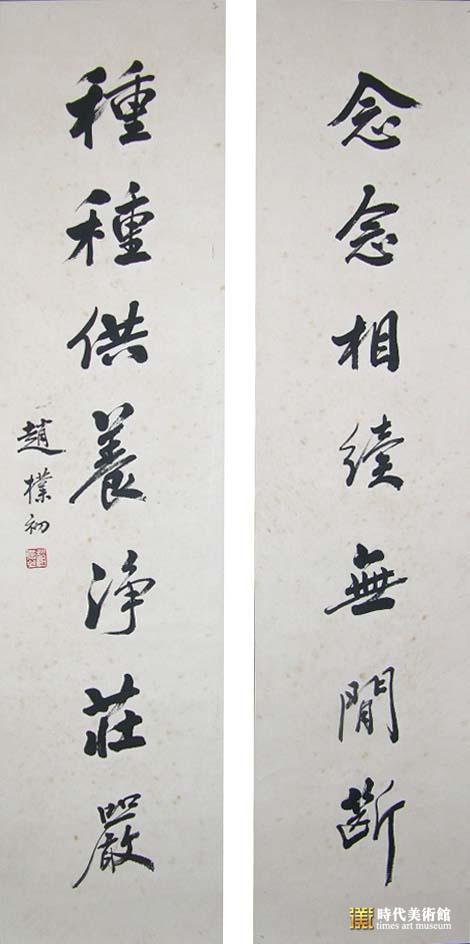 念念相續無間斷
種種供養淨莊嚴
趙樸初
時代美術館
times art museum